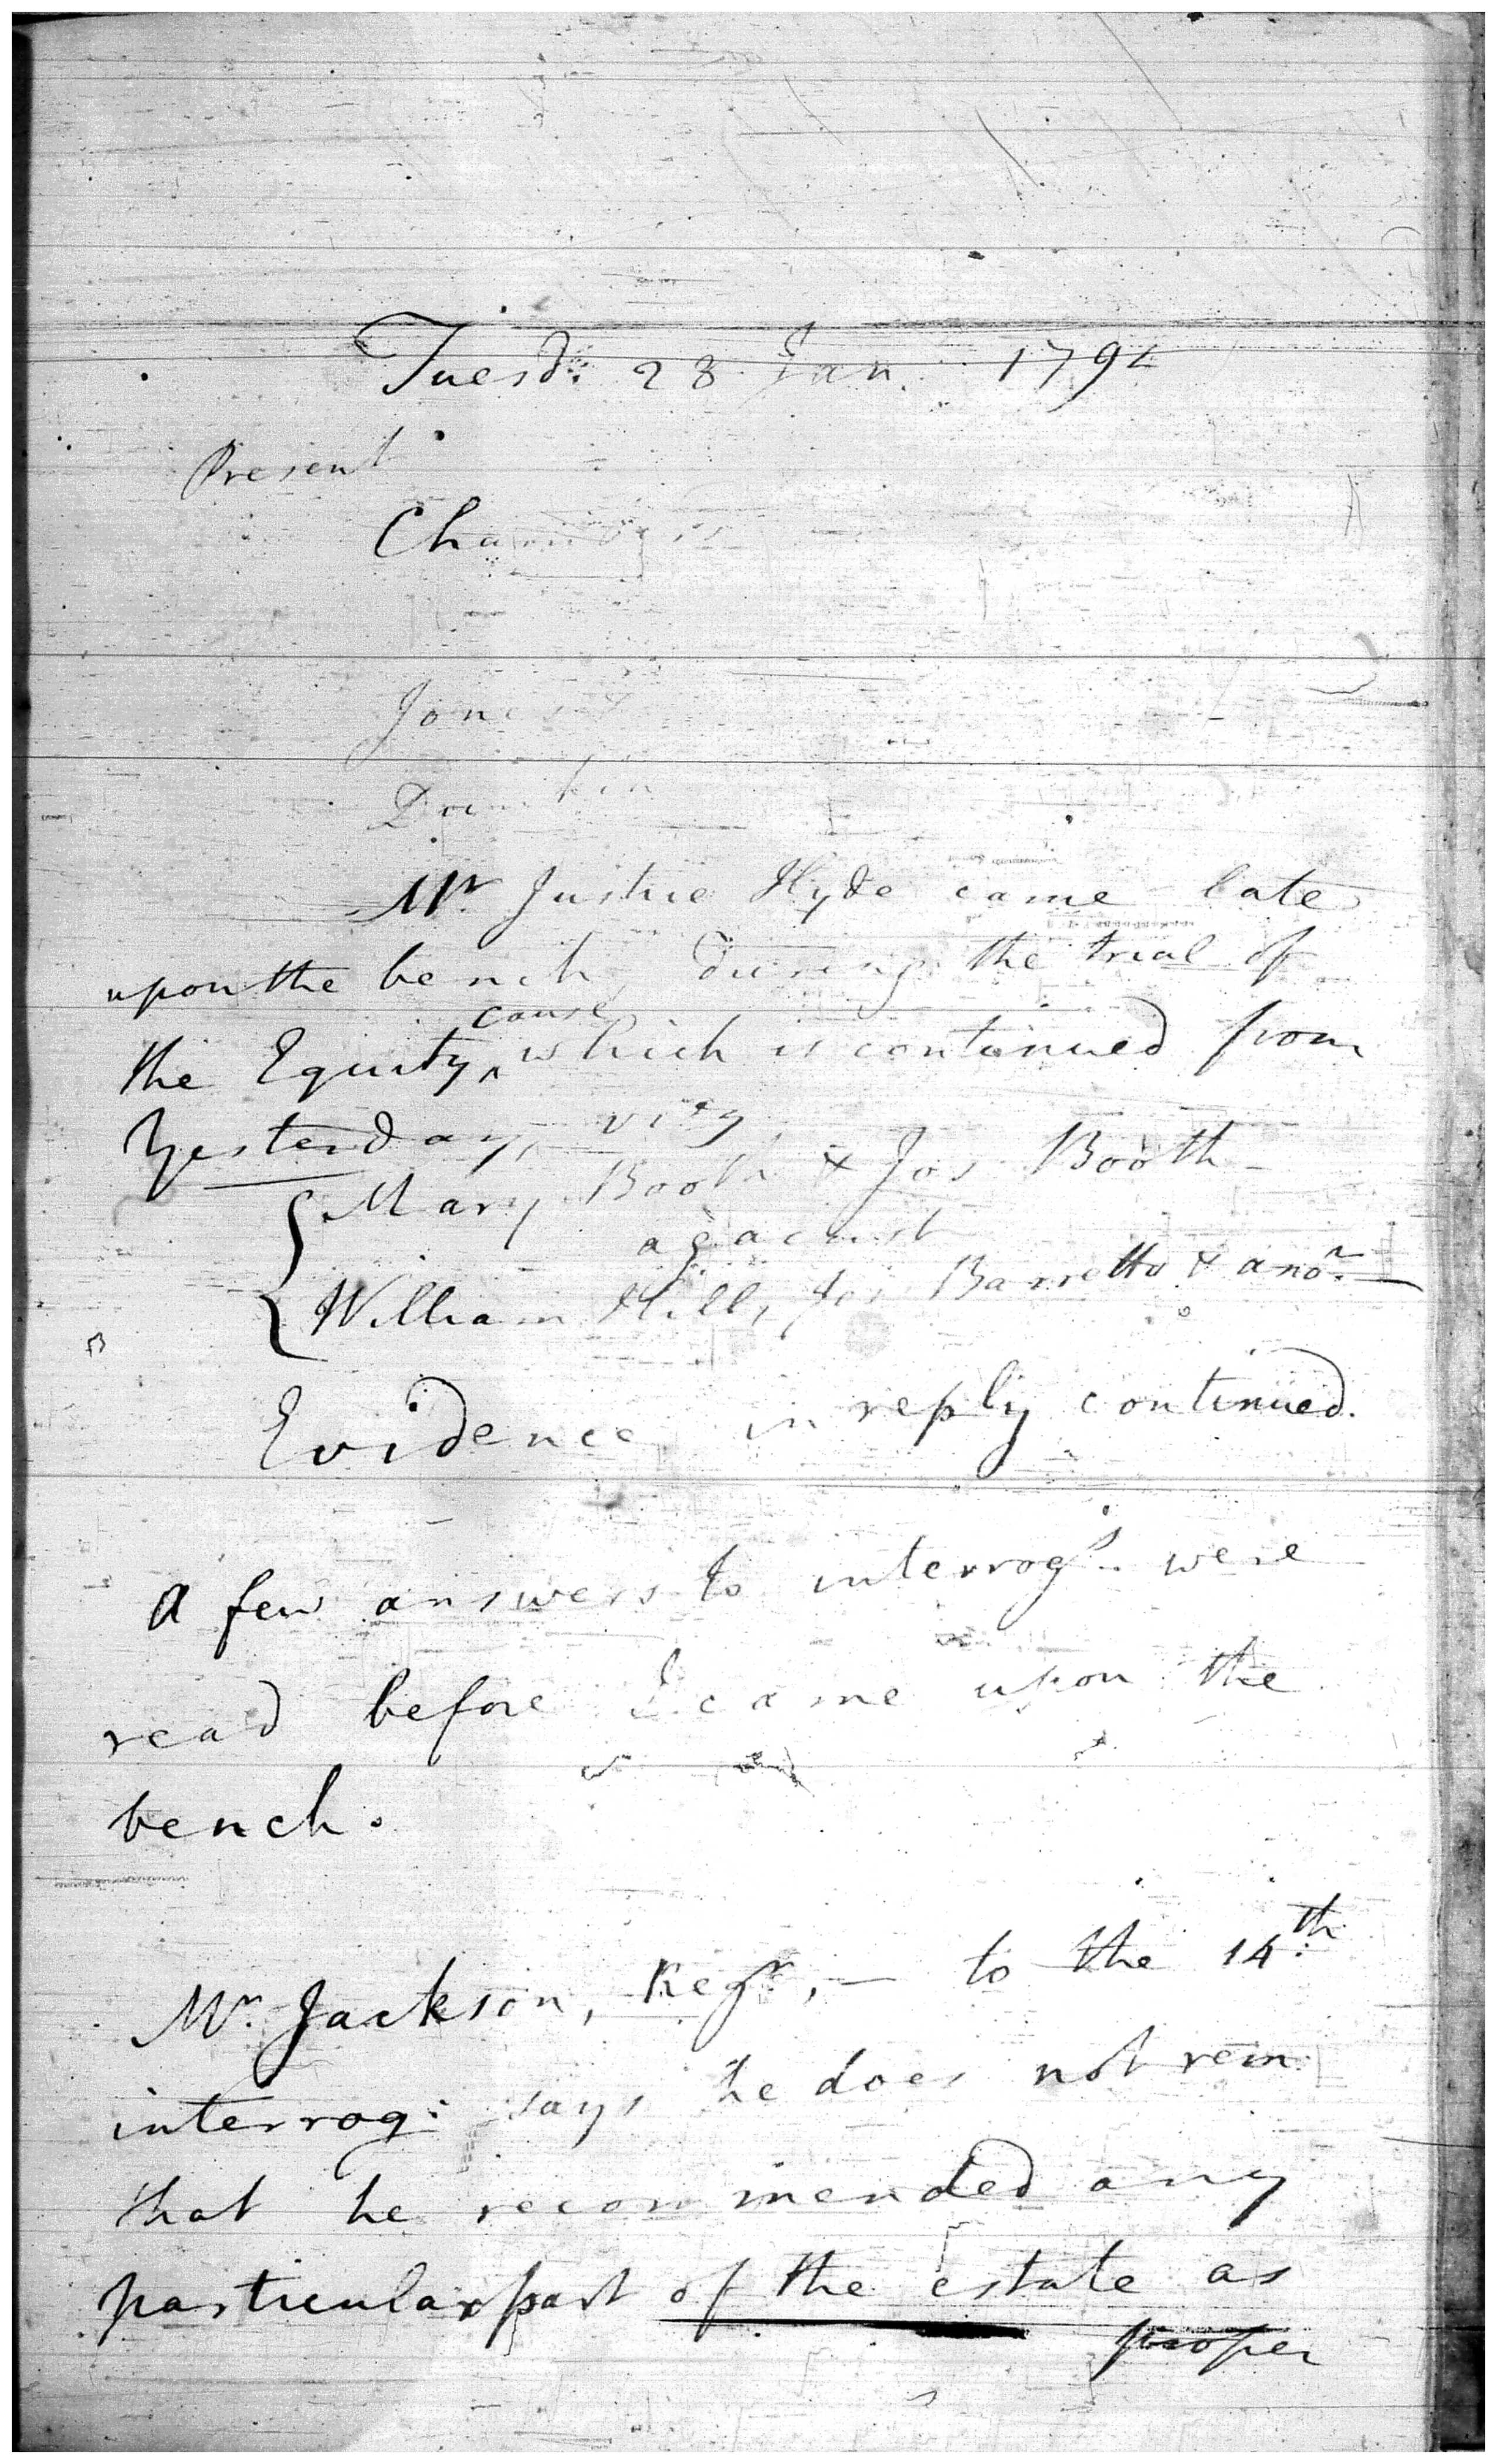 Tuesd: 28 Jan. 1794
Present
Chambers
Jones &
Dunkin
Mr. Justice Hyde came late
upon the bench, during the trial of
the Equity ^cause which is continued from
Yesterday, viz
Mary Booth & Jos Booth
against
William Hill, Jos Barretto & anor.
Evidence in reply continued.
A few answers to interrogs. were
read before I came upon the
bench.
Mr. Jackson, Regr, — to the 14th
interrog: says he does not rem:
that he recommended any
particular part of the estate as
proper